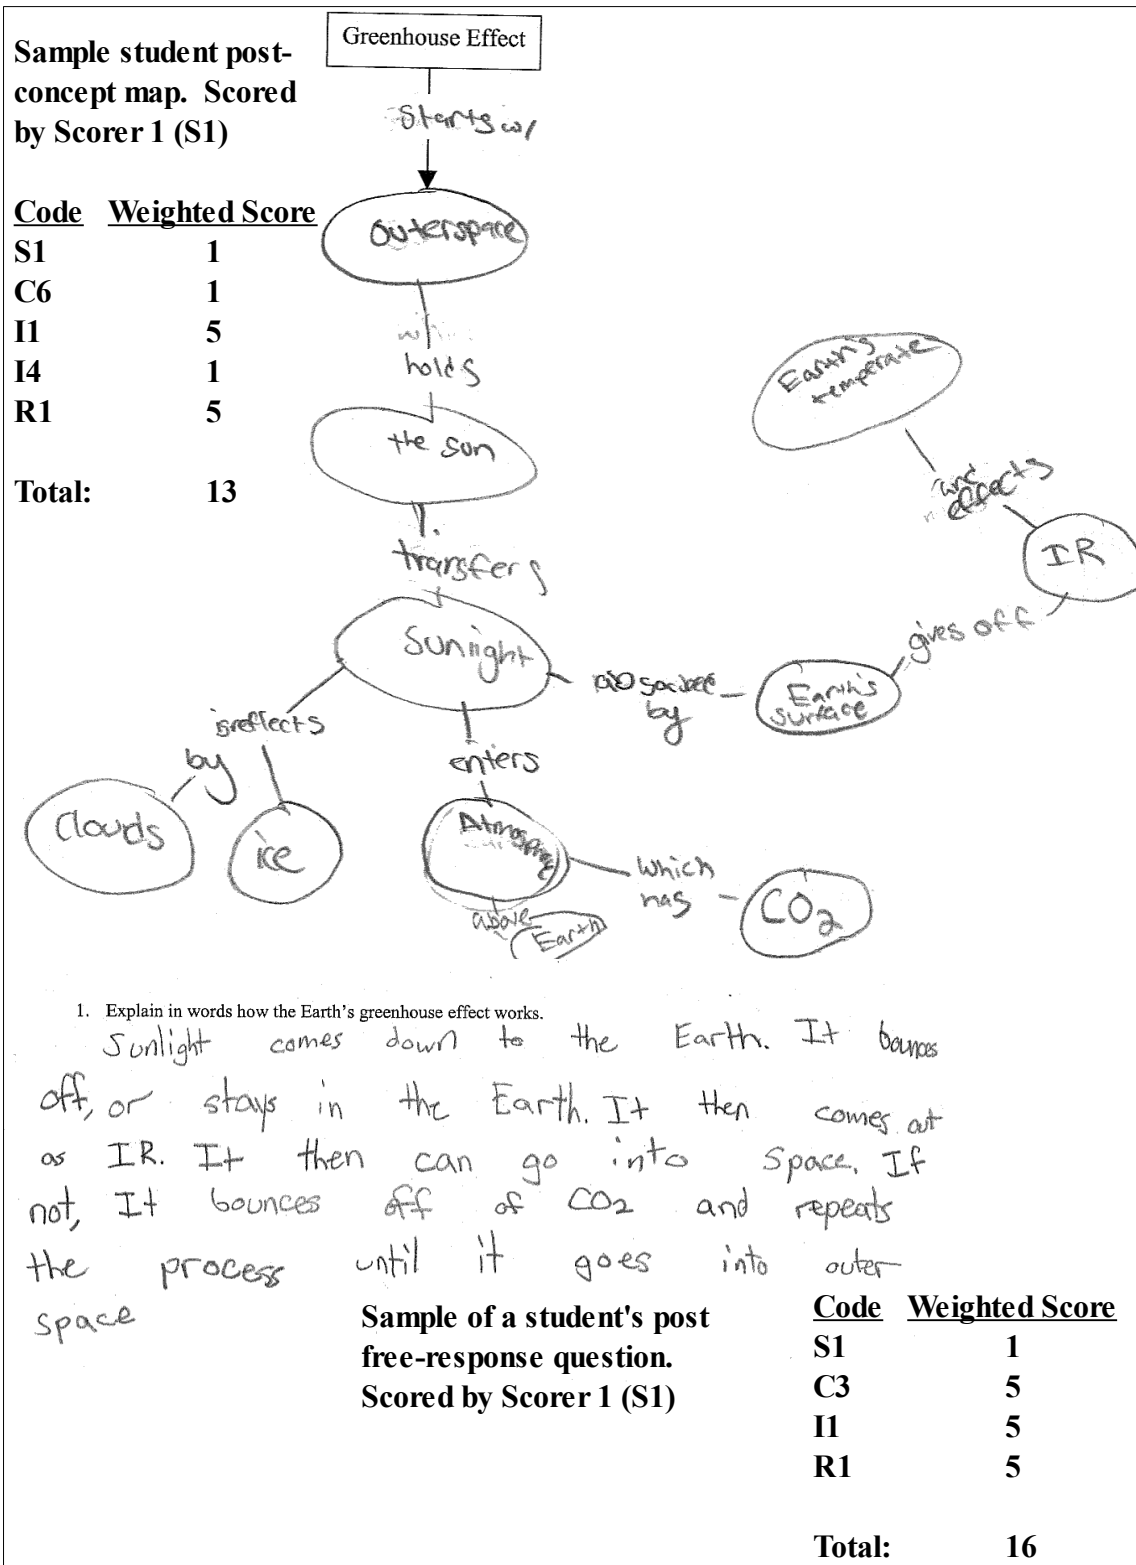 Sample student post-
concept map. Scored
by Scorer 1 (S1)
Code Weighted Score
S1 1
C6 1
I1 5
I4 1
R1 5
Total: 13
Greenhouse Effect
Starts w/
Outerspace
holds
the sun
transfers
Sunlight
isreflects
by
Clouds
ice
enters
Atmosphere
above
Earth
which
has
CO2
absorbed
by
Earth's
surface
gives off
IR
and
effects
Earth's
temperate
1. Explain in words how the Earth's greenhouse effect works.
Sunlight comes down to the Earth. It bounces
off, or stays in the Earth. It then comes out
as IR. It then can go into space. If
not, It bounces off of CO2 and repeats
the process until it goes into outer
space
Sample of a student's post
free-response question.
Scored by Scorer 1 (S1)
Code Weighted Score
S1 1
C3 5
I1 5
R1 5
Total: 16